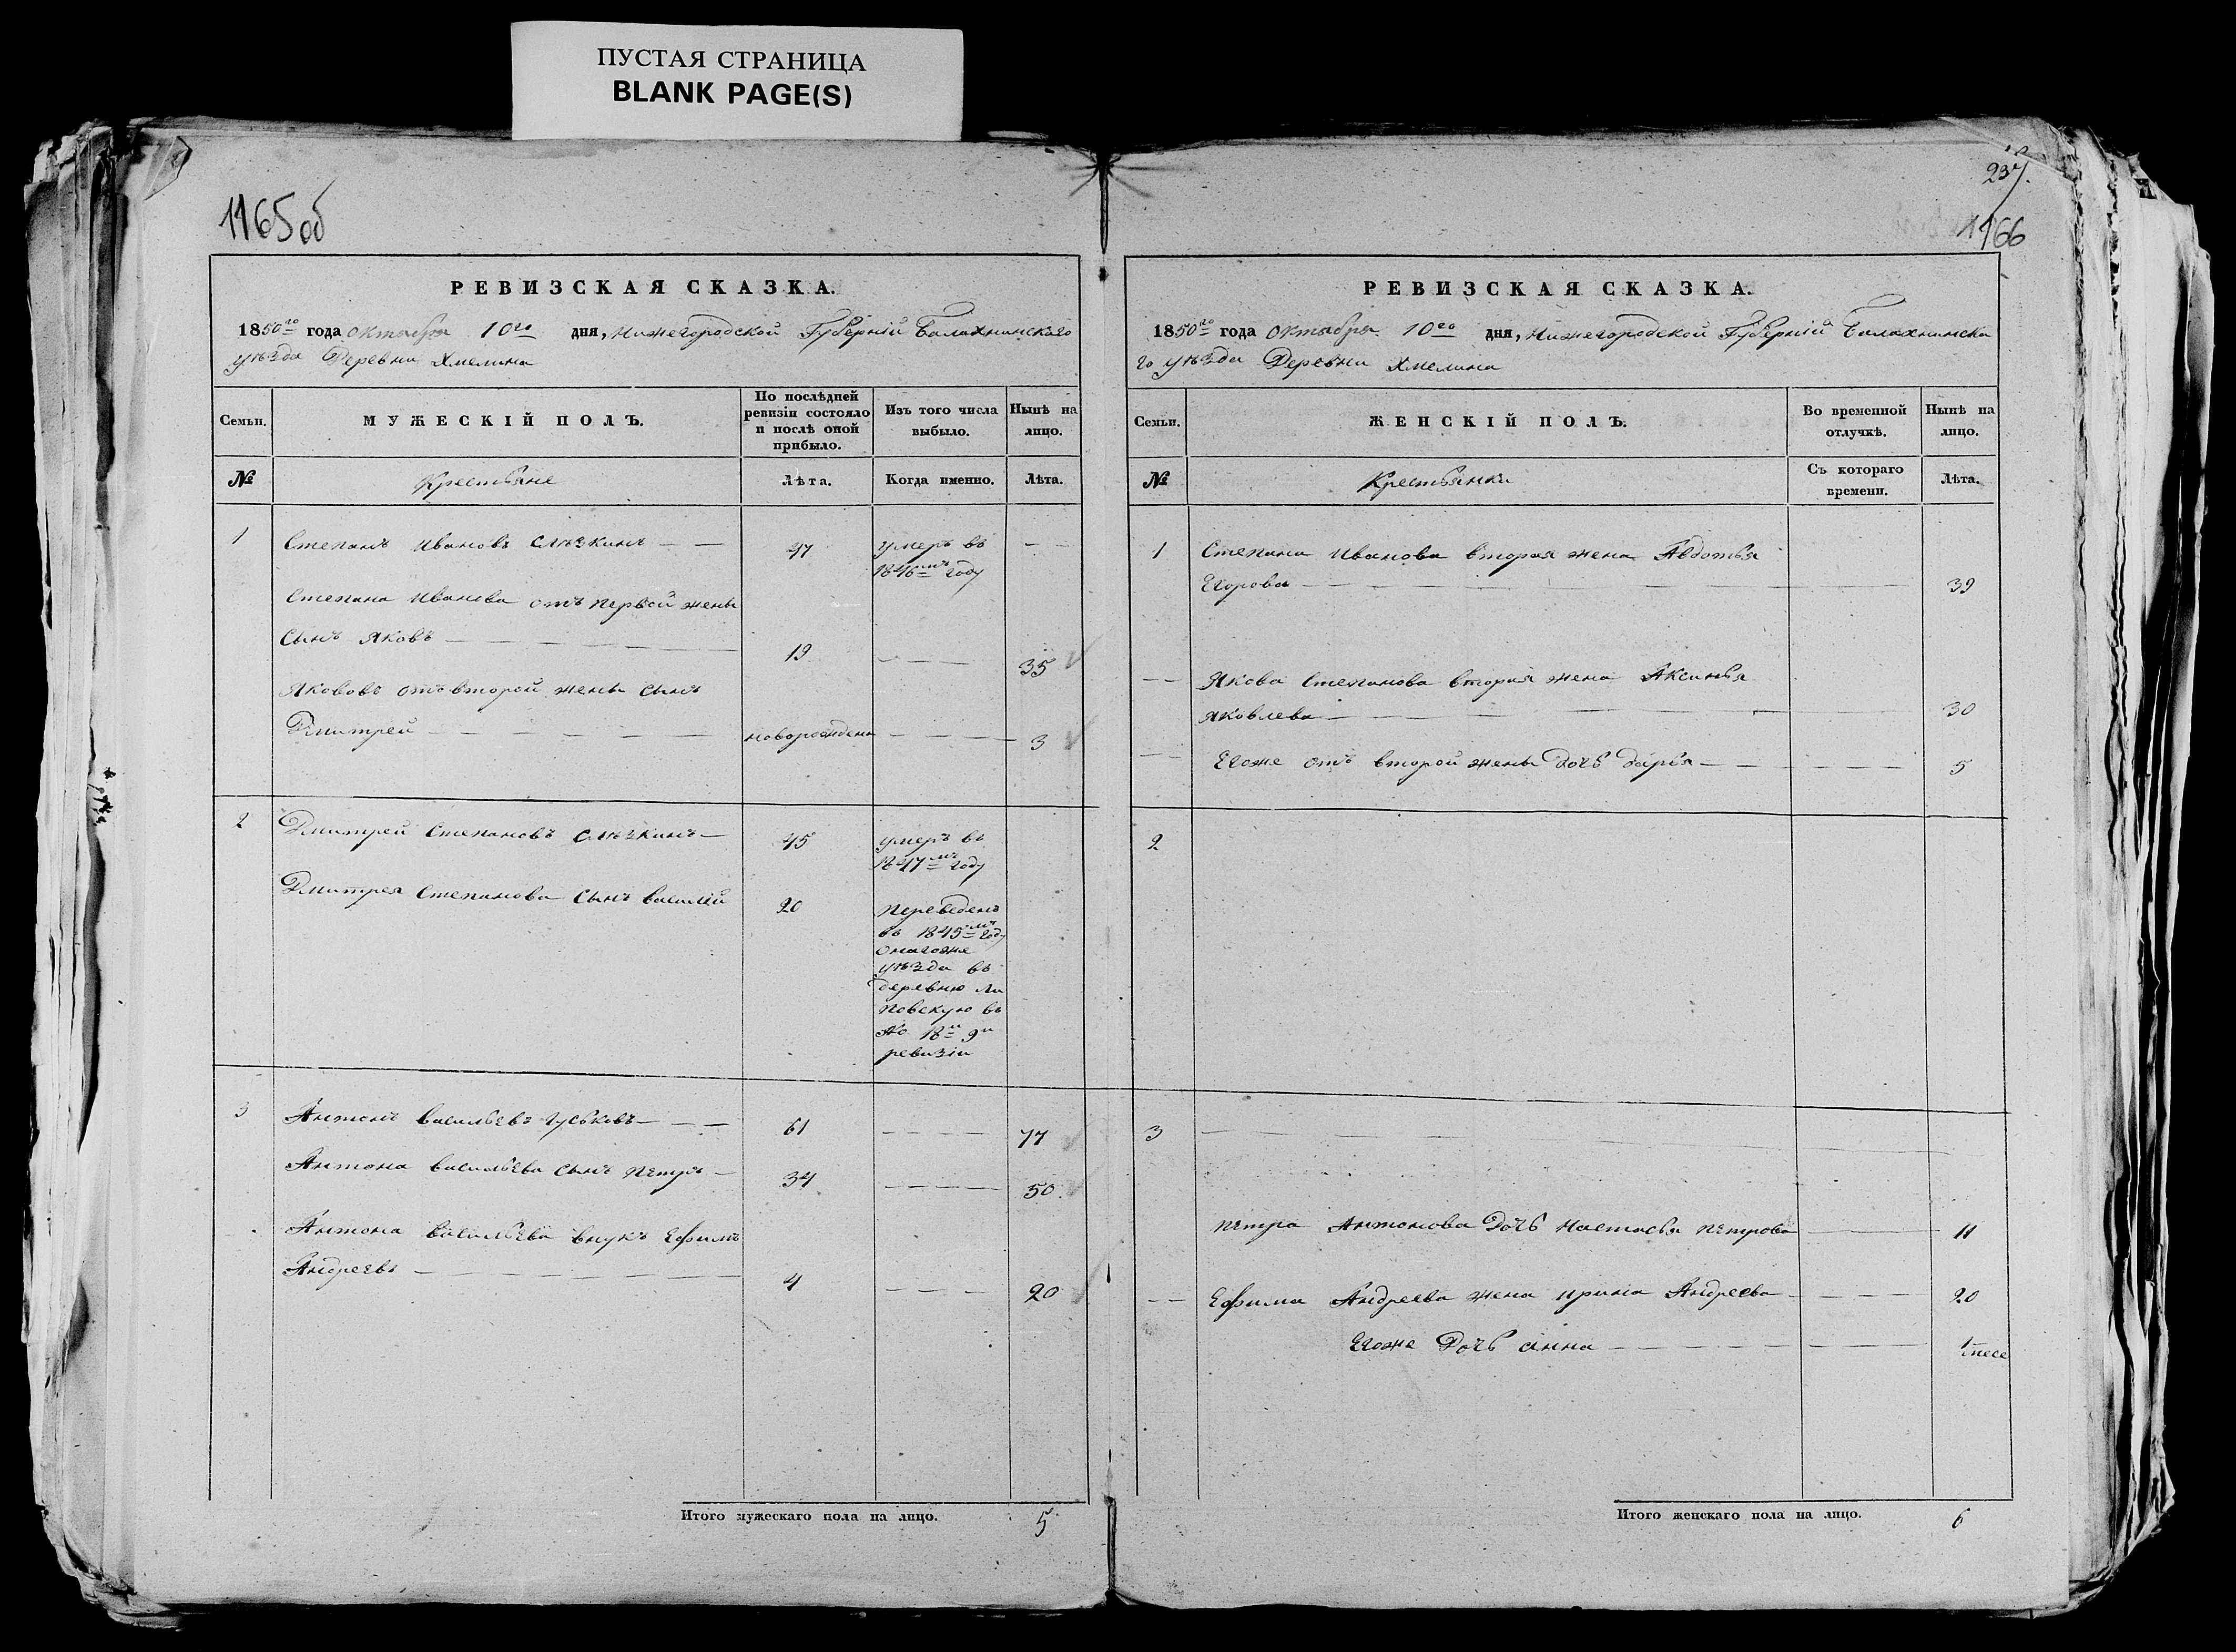 ПУСТАЯ СТРАНИЦА
BLANK PAGE(S)
1165об
РЕВИЗСКАЯ СКАЗКА.
1850го года октября 10го дня, Нижегородской Губерній Балахнинскаго
уѣзда Деревни Хмелина
Семьи.
МУЖЕСКІЙ ПОЛЪ.
По послѣдней
ревизіи состояло
и послѣ оной
прибыло.
Изъ того числа
выбыло.
Нынѣ на
лицо.
№
Крестьяне
Лѣта.
Когда именно.
Лѣта.
1 Степанъ Ивановъ — — 47 умеръ въ — —
1846мъ году
Степана Иванова отъ первой жены
сынъ Яковъ — — — — 19 — — — 35
Яковъ отъ второй жены сынъ
Дмитрей — — — — — новорожденъ — — — 3
2 Дмитрей Степановъ — 45 умеръ въ
1847мъ году
Дмитрея Степанова сынъ Василій 20 переведенъ
въ 1845мъ году
онагоже
уѣзда въ
деревню Ли
повскую въ
№ 18й 9й
ревизіи
3 Антонъ Васильевъ Гуськовъ — — — 61 — — — 77
Антона Васильева сынъ Петръ — 34 — — — 50.
Антона Васильева внукъ Ефимъ
Андреевъ — — — — — — 4 — — — 20
Итого мужескаго пола на лицо. 5
237.
1166
РЕВИЗСКАЯ СКАЗКА.
1850го года октября 10го дня, Нижегородской Губерній Балахнинска
го уѣзда Деревни Хмелина
Семьи.
ЖЕНСКІЙ ПОЛЪ.
Во временной
отлучкѣ.
Нынѣ на
лицо.
№
Крестьянки
Съ котораго
времени.
Лѣта.
1 Степана Иванова вторая жена Авдотья
Егорова — — — — — — 39
— — Якова Степанова вторая жена Аксинья
Яковлева — — — — — — 30
— — Егоже отъ второй жены дочь Дарья — — — — — 5
2
3 — — — — — —
Петра Антонова дочь Настасья Петрова — 11
— — Ефима Андреева жена Ирина Андреева — — — — 20
Егоже дочь Анна — — — — — —
Итого женскаго пола на лицо. 6